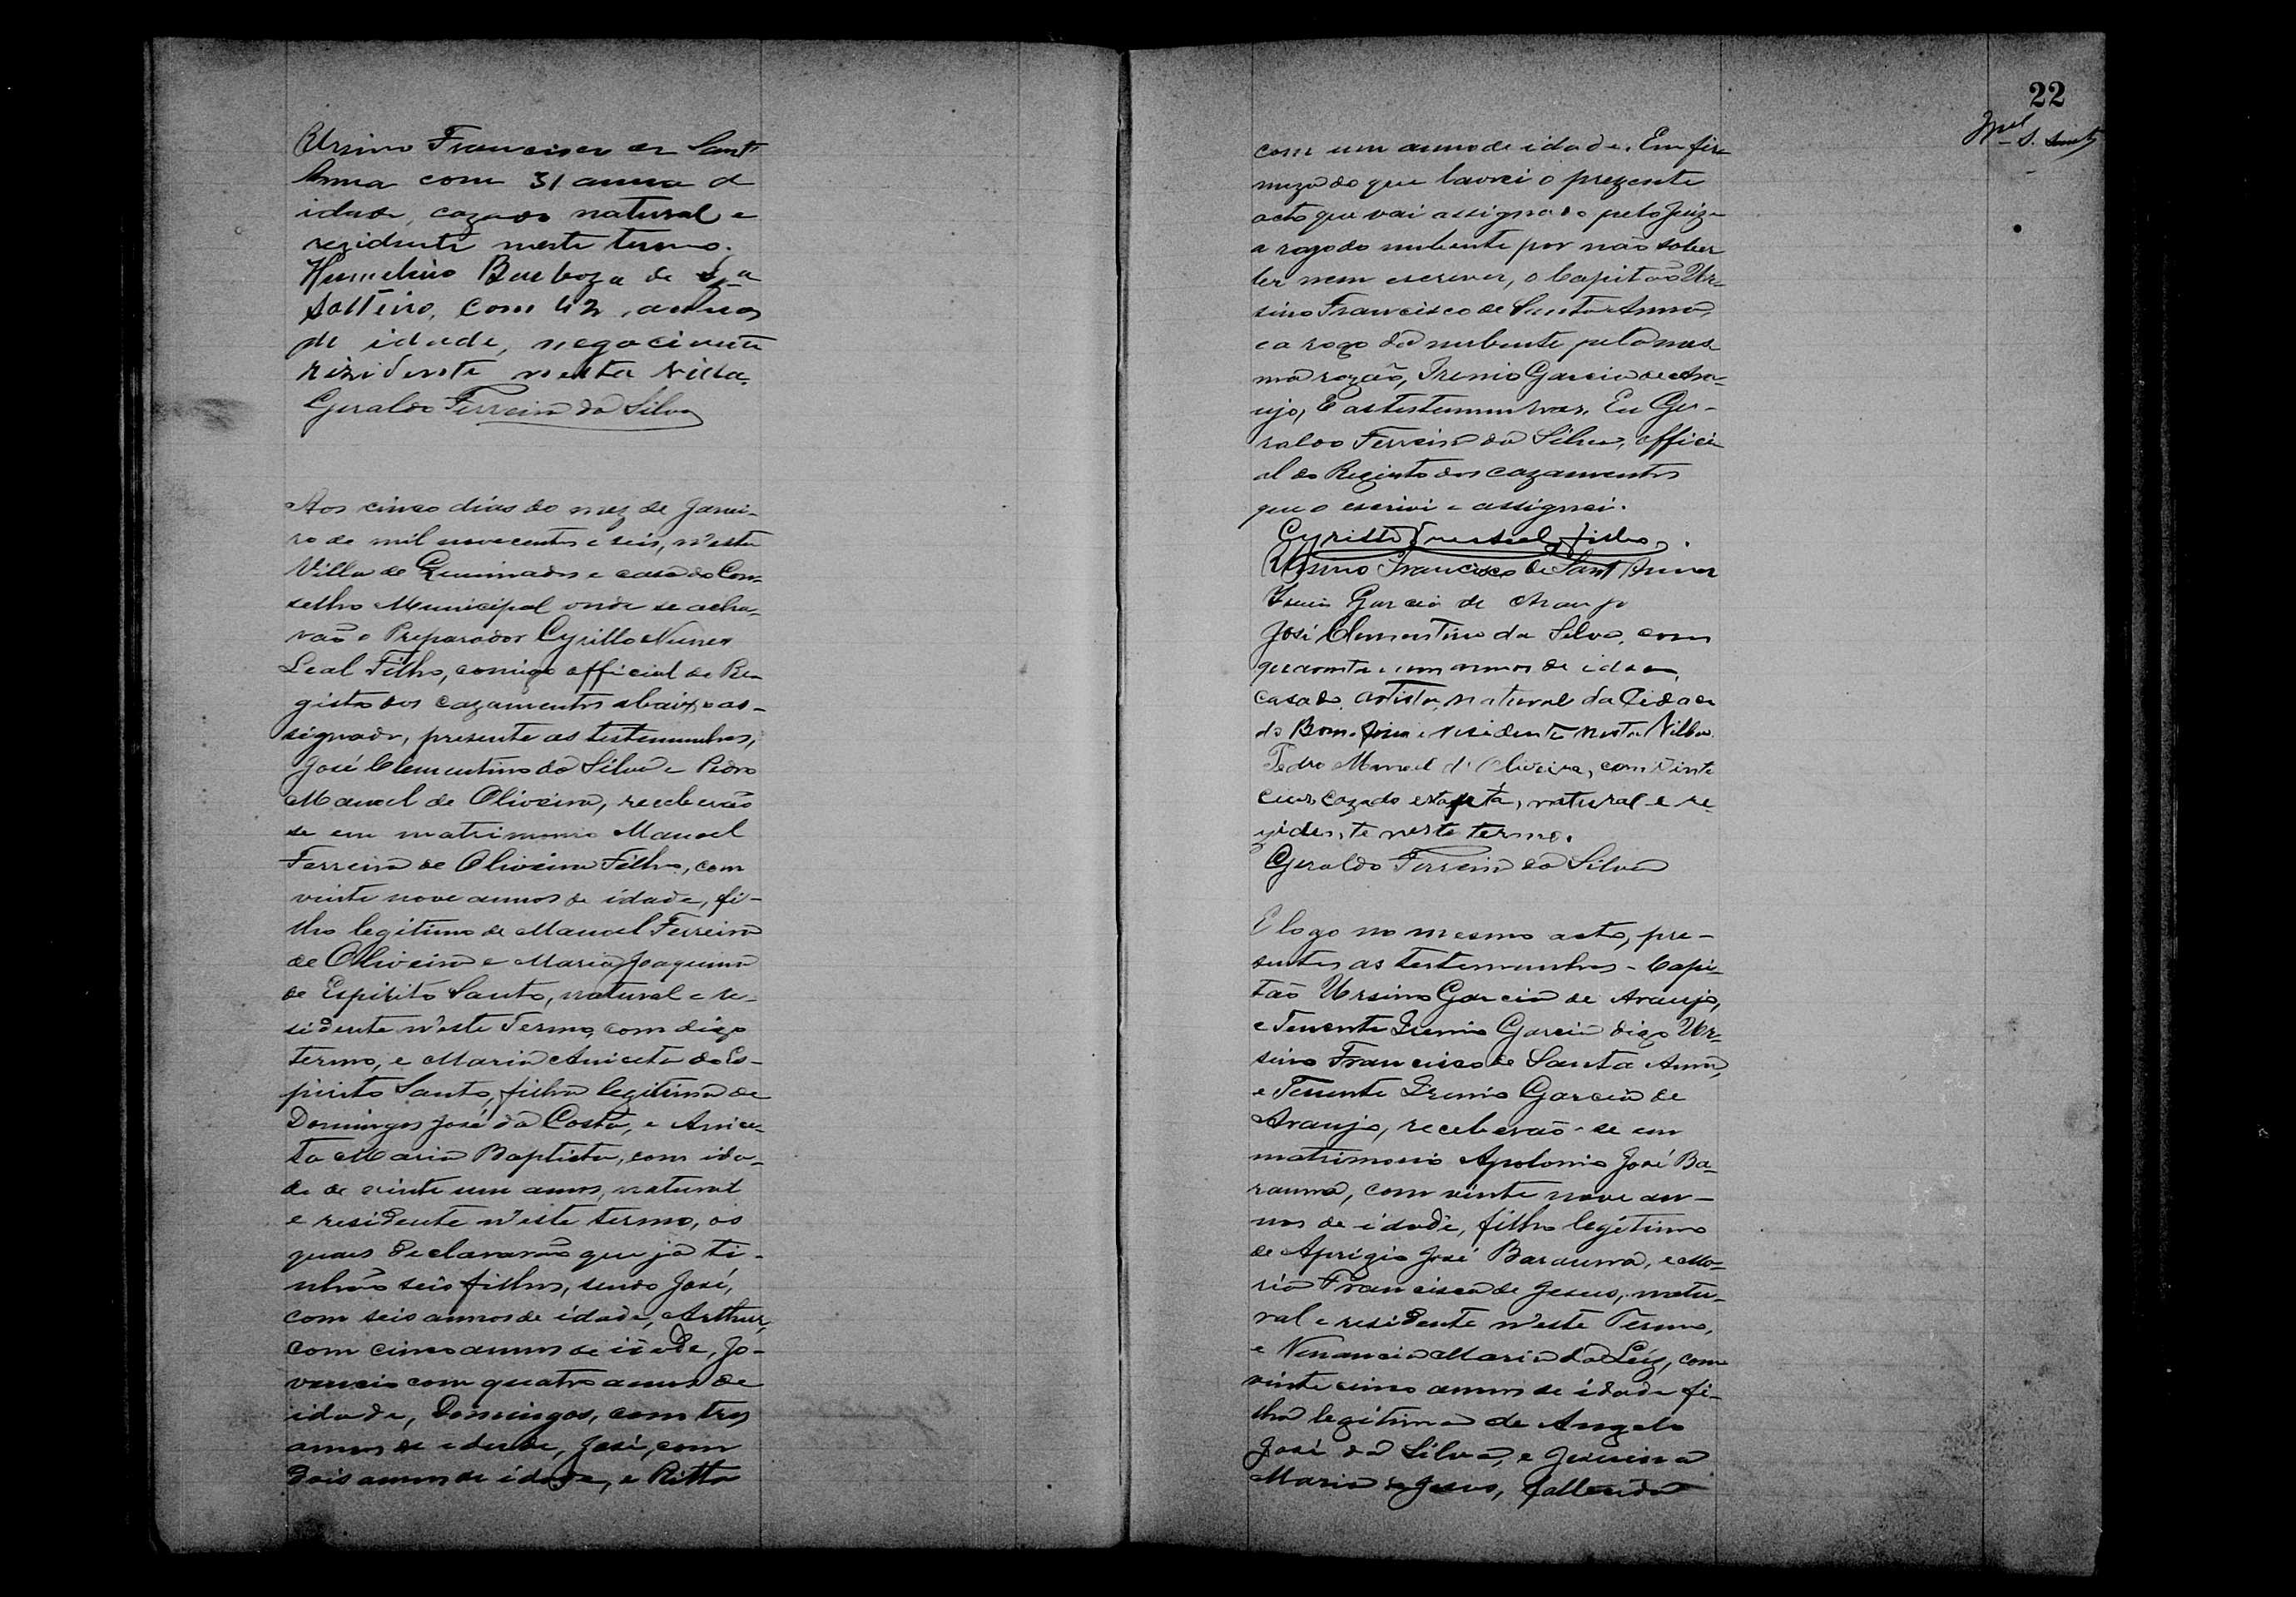 Ursino Francisco de Sant
Anna com 31 annos d
idade, cazado natural e
rezidente neste termo.
Humelino Barboza de Sa
solteiro, com 42 annos
de idade, negociante
rezidente nesta villa.
Geraldo Ferreira da Silva
Aos cinco dias do mez de Janei-
ro de mil novecentos e seis, n'esta
Villa de Queimadas e casa do Con-
selho Municipal onde se acha-
vão o Preparador Cyrillo Nunes
Leal Filho, comigo official do Re-
gisto dos cazamentos abaixo as-
signado, presente as testemunhas,
José Clementino da Silva e Pedro
Manoel de Oliveira, receberão
se em matrimonio Manoel
Ferreira de Oliveira Filho, com
vinte nove annos de idade, fi-
lho legitimo de Manoel Ferreira
de Oliveira e Maria Joaquina
do Espirito Santo, natural e re-
sidente n'este Termo, com digo
termo, e Maria Aniceta do Es-
pirito Santo, filha legitima de
Domingos José da Costa, e Anice-
ta Maria Baptista, com ida-
de de vinte um annos, natural
e residente n'este termo, os
quaes declararão que já ti-
nhão seis filhos, sendo José,
com seis annos de idade, Arthur,
com cinco annos de idade, Jo-
vencio com quatro annos de
idade, Domingos, com tres
annos de idade, José, com
dois annos de idade, e Ritta
22
com um anno de idade. Em fir-
meza do que lavrei o prezente
acto que vai assignado pelo Juiz
a rogo do nubente por não saber
ler nem escrever, o Capitão Ur-
sino Francisco de Santa Anna,
e a rogo da nubente pela mes-
ma razão, Irenio Garcia de Ara-
ujo, e as testemunhas. Eu Ge-
raldo Ferreira da Silva, offici-
al do Registo dos cazamentos
que o escrivi e assignei.
Cyrillo Leal Filho.
Ursino Francisco de Sant Anna
Irenio Garcia de Araujo
José Clementino da Silva, com
quarenta e um annos de idade,
casado, artista, natural da Cidade
do Bomfim e residente nesta Villa.
Pedro Manoel d'Oliveira, com vinte
cazado estafeta, natural e re-
zidente neste termo.
Geraldo Ferreira da Silva
E logo no mesmo acto, pre-
sentes as testemunhas - Capi-
tão Ursino Garcia de Araujo,
e Tenente Irenio Garcia digo Ur-
sino Francisco de Santa Anna,
e Tenente Irenio Garcia de
Araujo, receberão-se em
matrimonio Apolonio José Ba-
rauna, com vinte nove an-
nos de idade, filho legitimo
de Aprigio José Barauna, e Ma-
ria Francisca de Jesus, natu-
ral e residente n'este Termo,
e Venancia Maria da Luz, com
vinte cinco annos de idade fi-
lha legitima de Angelo
José da Silva, e
Maria de Jesus, fallecida